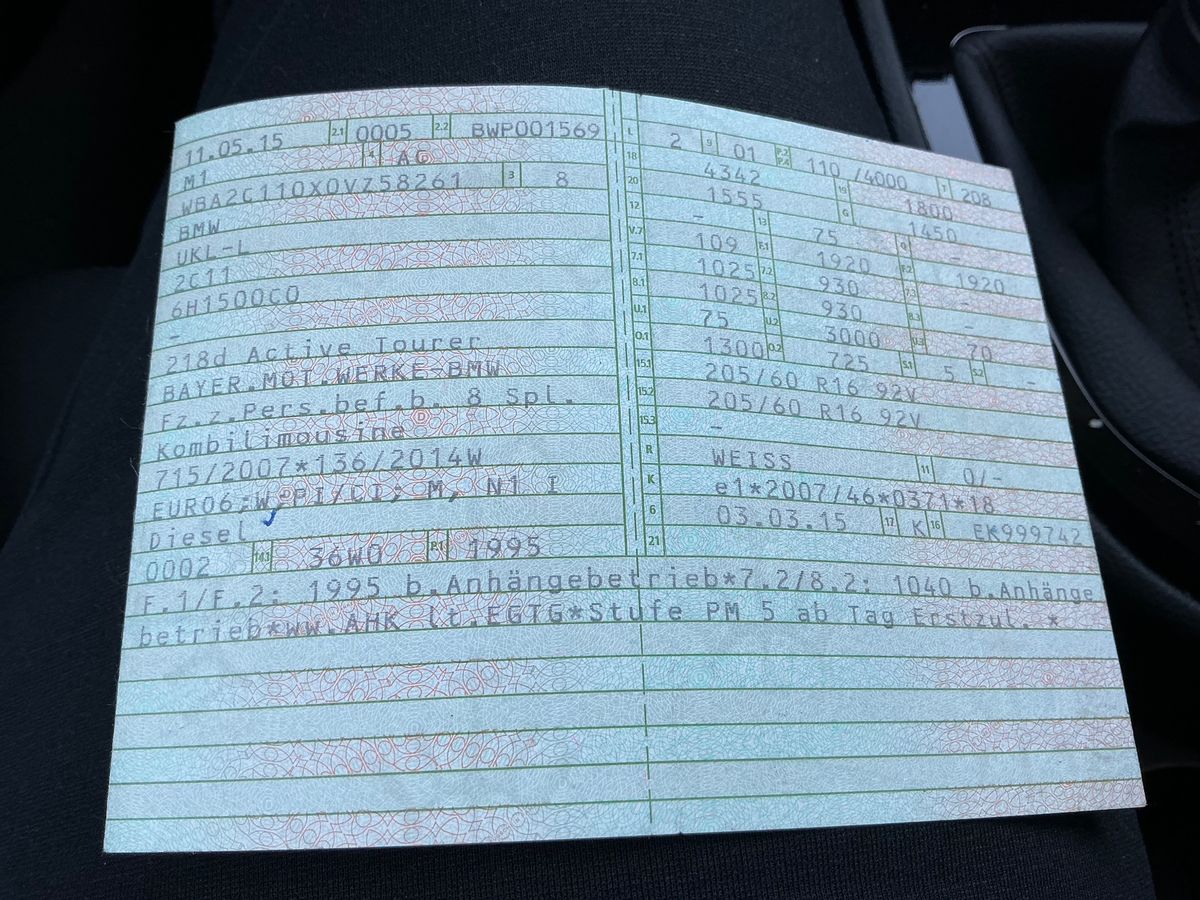 11.05.15 2.1 0005 2.2 BWP001569
M1 4 AG
WBA2C110X0VZ58261 3 8
BMW
UKL-L
2C11
6H1500C0
-
218d Active Tourer
BAYER.MOT.WERKE-BMW
Fz.z.Pers.bef.b. 8 Spl.
Kombilimousine
715/2007*136/2014W
EURO6;W,PI/CI; M, N1 I
Diesel
0002 14.1 36W0 P.1 1995
L 2 9 01 P.2 P.4 110 /4000 T 208
18 4342 19 1800
20 1555 G 1450
12 - 13 75 Q -
V.7 109 F.1 1920 F.2 1920
7.1 1025 7.2 930 7.3 -
8.1 1025 8.2 930 8.3 -
U.1 75 U.2 3000 U.3 70
O.1 1300 O.2 725 S.1 5 S.2 -
15.1 205/60 R16 92V
15.2 205/60 R16 92V
15.3 -
R WEISS 11 0/-
K e1*2007/46*0371*18
6 03.03.15 17 K 16 EK999742
21
F.1/F.2: 1995 b.Anhängebetrieb*7.2/8.2: 1040 b.Anhänge
betrieb*ww.AHK lt.EGTG*Stufe PM 5 ab Tag Erstzul. *